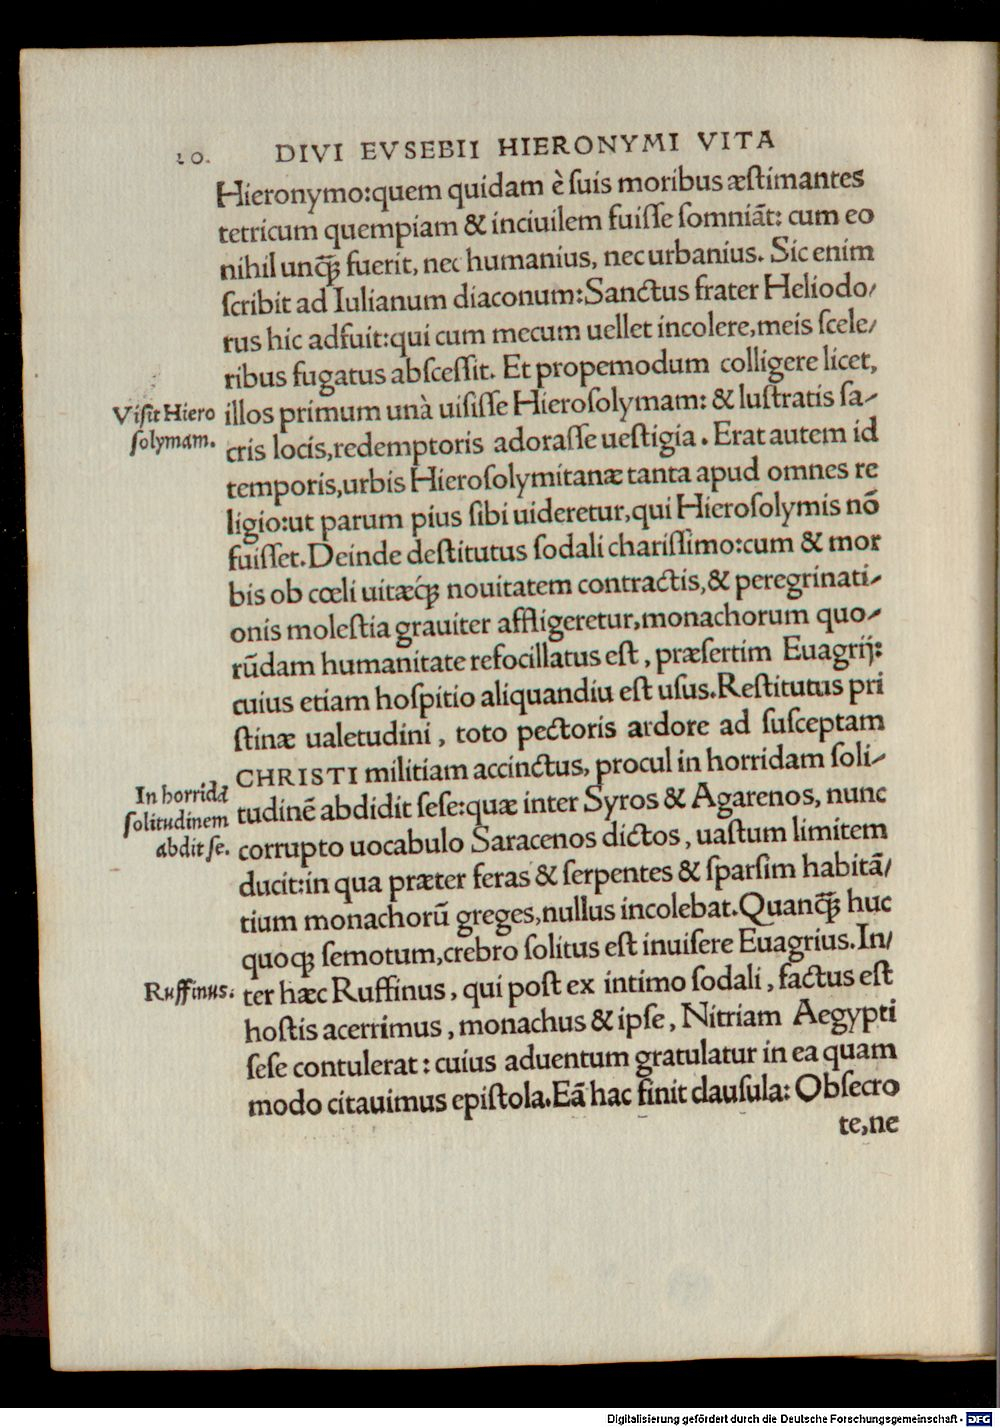 20. DIVI EVSEBII HIERONYMI VITA
Hieronymo:quem quidam è ſuis moribus æſtimantes
tetricum quempiam & inciuilem fuiſſe ſomniāt: cum eo
nihil unq̄ꝫ fuerit, nec humanius, nec urbanius. Sic enim
ſcribit ad Iulianum diaconum:Sanctus frater Heliodo/
rus hic adfuit:qui cum mecum uellet incolere,meis ſcele/
ribus fugatus abſceſſit. Et propemodum colligere licet,
Viſit Hiero
ſolymam.
illos primum unà uiſiſſe Hieroſolymam: & luſtratis ſa/
cris locis,redemptoris adoraſſe ueſtigia. Erat autem id
temporis,urbis Hieroſolymitanæ tanta apud omnes re
ligio:ut parum pius ſibi uideretur,qui Hieroſolymis nō
fuiſſet.Deinde deſtitutus ſodali chariſſimo:cum & mor
bis ob cœli uitæq́ꝫ nouitatem contractis,& peregrinati/
onis moleſtia grauiter affligeretur,monachorum quo/
rūdam humanitate refocillatus eſt, præſertim Euagrij:
cuius etiam hoſpitio aliquandiu eſt uſus.Reſtitutus pri
ſtinæ ualetudini, toto pectoris ardore ad ſuſceptam
CHRISTI militiam accinctus, procul in horridam ſoli/
In horridā
ſolitudinem
abdit ſe.
tudinē abdidit ſeſe:quæ inter Syros & Agarenos, nunc
corrupto uocabulo Saracenos dictos, uaſtum limitem
ducit:in qua præter feras & ſerpentes & ſparſim habitā/
tium monachorū greges,nullus incolebat.Quanq̄ꝫ huc
quoqꝫ ſemotum,crebro ſolitus eſt inuiſere Euagrius.In/
Ruffinus.
ter hæc Ruffinus, qui poſt ex intimo ſodali, factus eſt
hoſtis acerrimus, monachus & ipſe, Nitriam Aegypti
ſeſe contulerat: cuius aduentum gratulatur in ea quam
modo citauimus epiſtola.Eā hac finit clauſula: Obſecro
te,ne
Digitalisierung gefördert durch die Deutsche Forschungsgemeinschaft - DFG